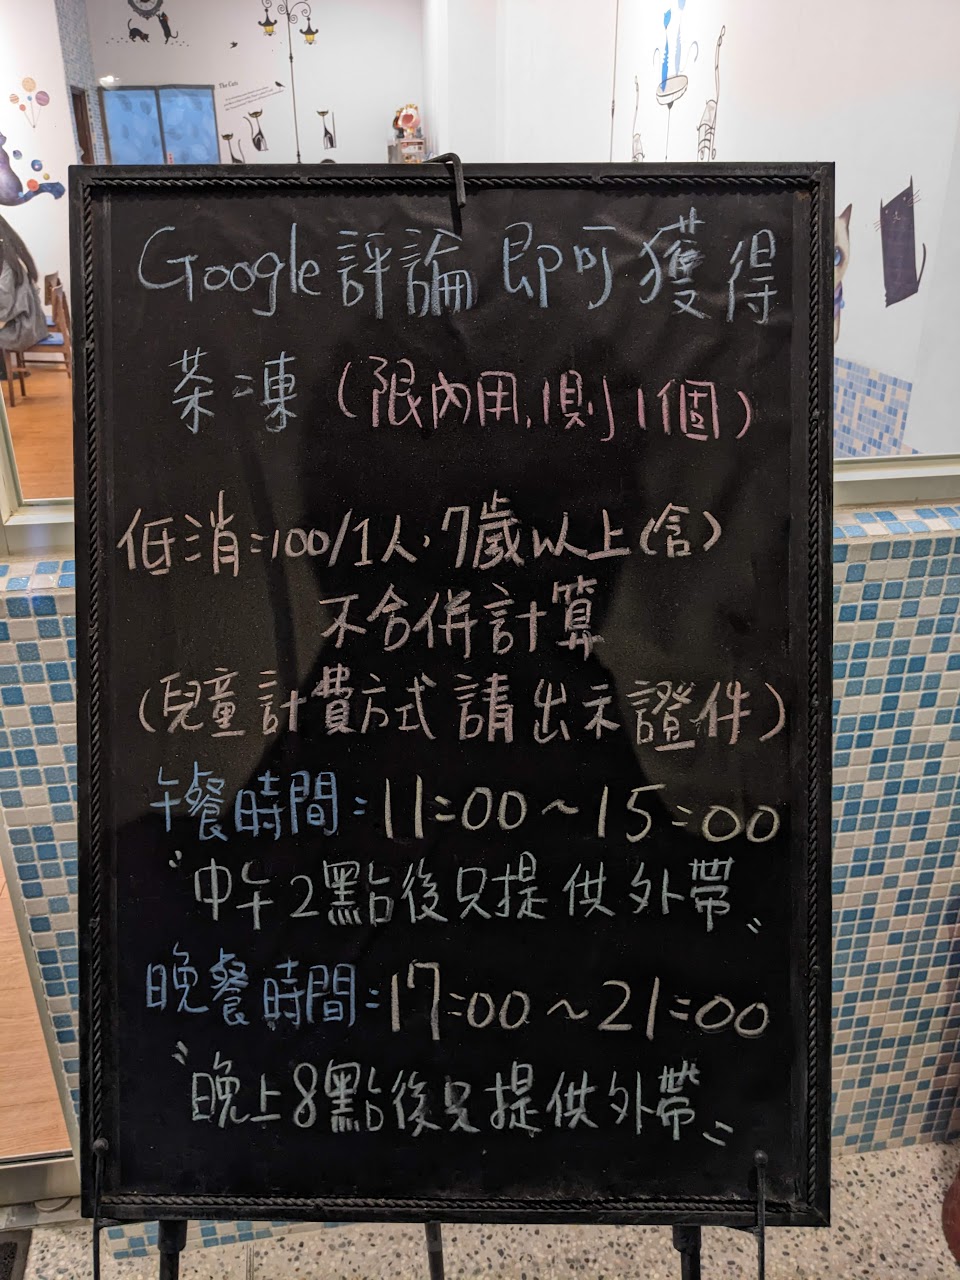 The Cats
Google評論即可獲得
茶凍(限內用,1則1個)
低消:100/1人,7歲以上(含)
不合併計算
(兒童計費方式請出示證件)
午餐時間:11:00~15:00
〝中午2點後只提供外帶〞
晚餐時間:17:00~21:00
〝晚上8點後只提供外帶〞